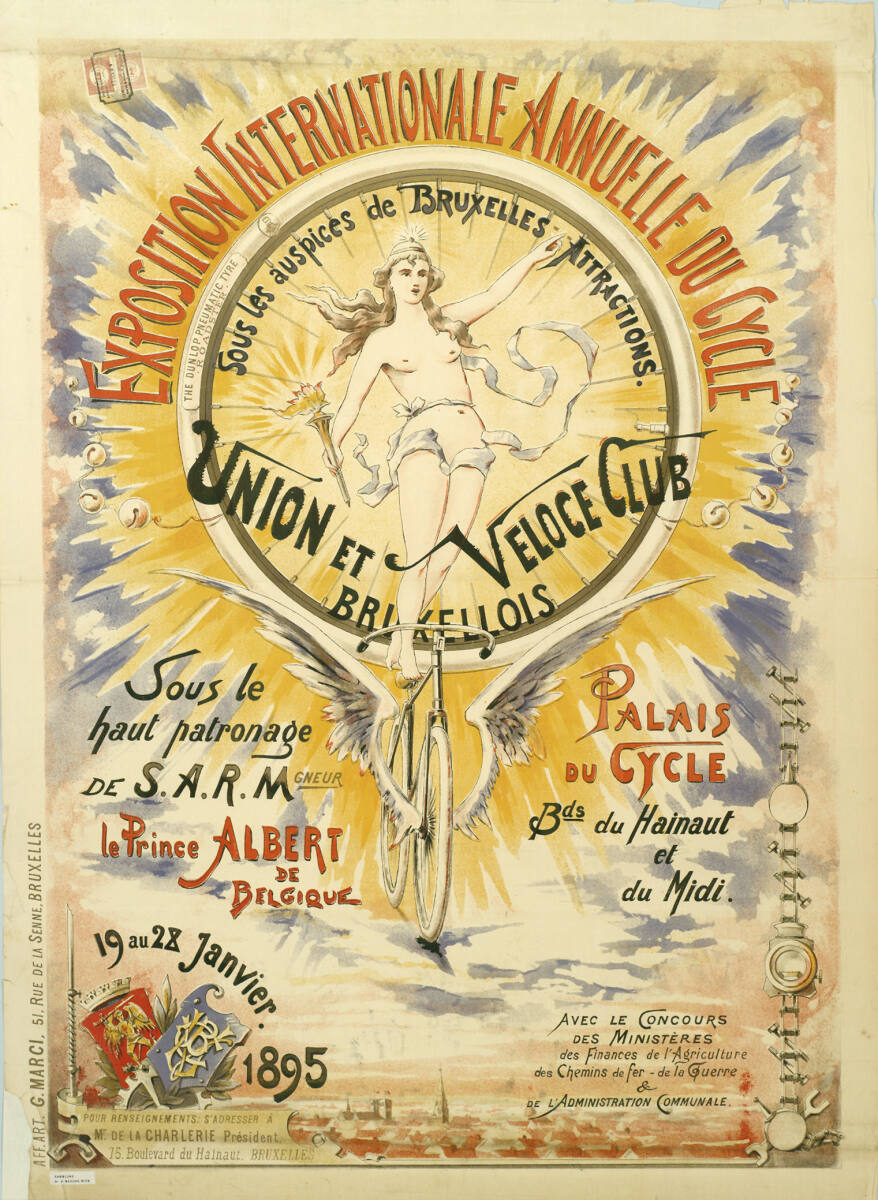 EXPOSITION INTERNATIONALE ANNUELLE DU CYCLE
Sous les auspices de BRUXELLES-ATTRACTIONS.
THE DUNLOP PNEUMATIC TYRE
ROADSTER
UNION ET VELOCE CLUB
BRUXELLOIS
Sous le
haut patronage
DE S.A.R. MGNEUR
le Prince ALBERT
DE
BELGIQUE
PALAIS
DU CYCLE
Bds du Hainaut
et
du Midi.
19 au 28 Janvier.
1895
AVEC LE CONCOURS
DES MINISTÈRES
des Finances de l'Agriculture
des Chemins de fer - de la Guerre
&
DE L'ADMINISTRATION COMMUNALE.
POUR RENSEIGNEMENTS S'ADRESSER À
Mr. DE LA CHARLERIE Président.
75. Boulevard du Hainaut. BRUXELLES
AFF. ART. G. MARCI, 51, RUE DE LA SENNE, BRUXELLES